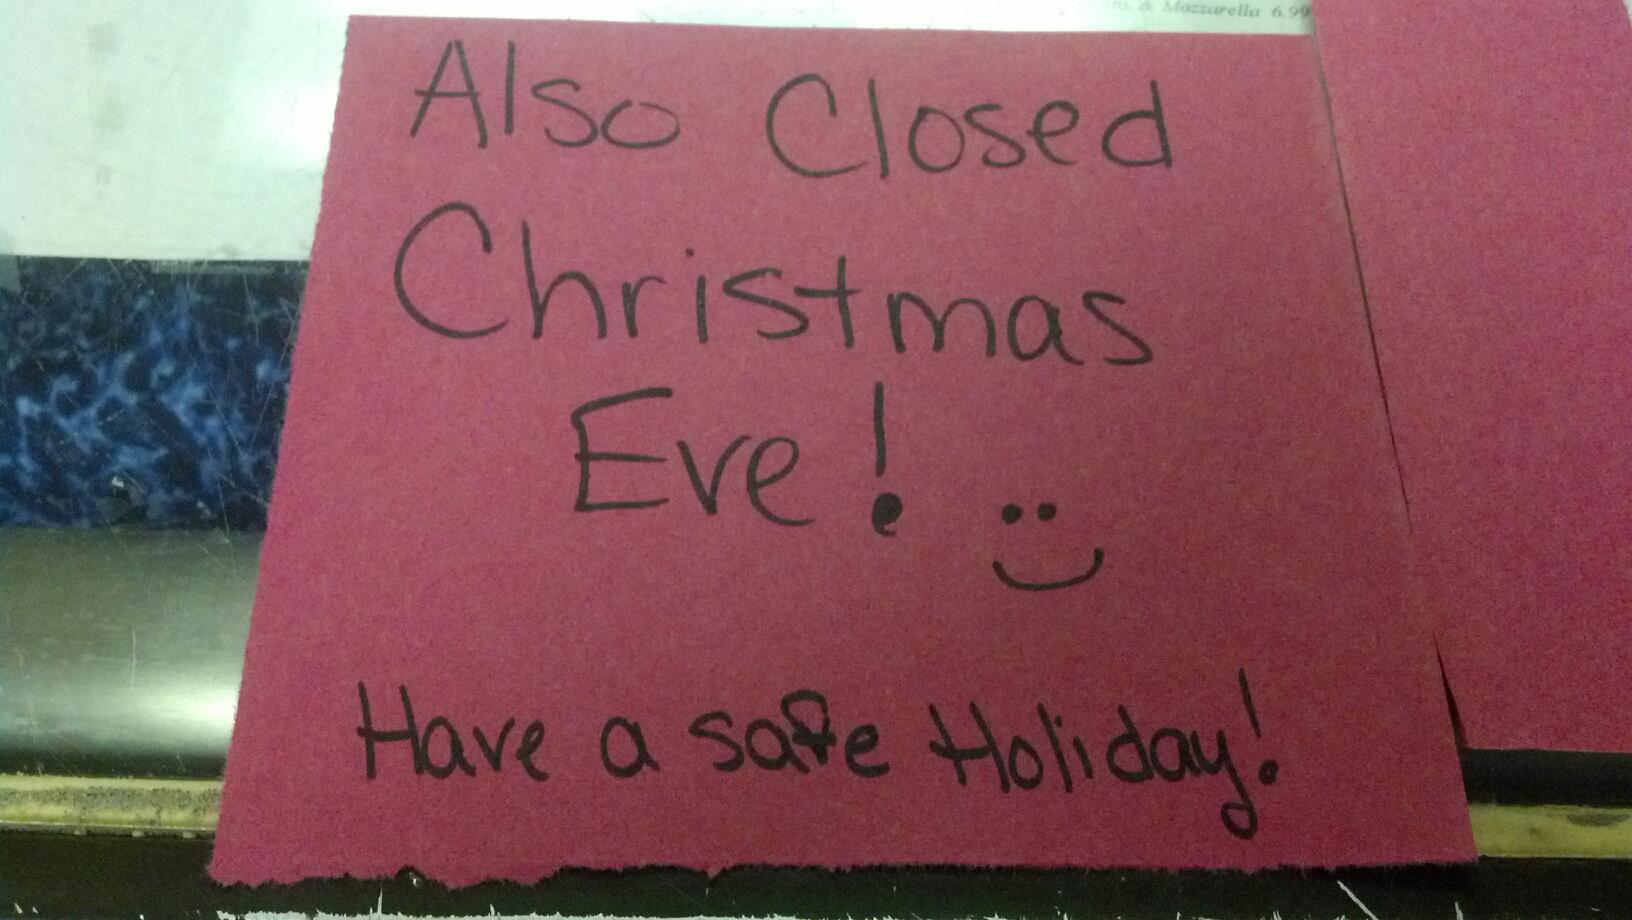 & Mozzarella 6.99
Also Closed
Christmas
Eve!
Have a safe Holiday!